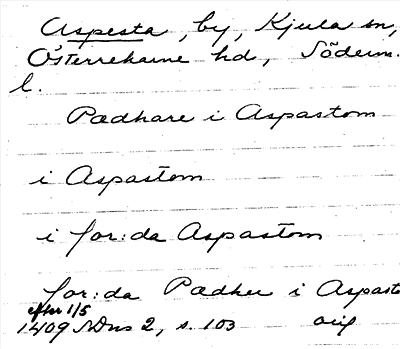 Aspesta, by, Kjula sn,
Österrekarne hd, Söderm.
l.
Pædhare i Aspastom
i Aspastom
i for:da Aspastom
for:da Pædher i Aspasto
efter 1/5
1409 SDns 2, s. 103 orig